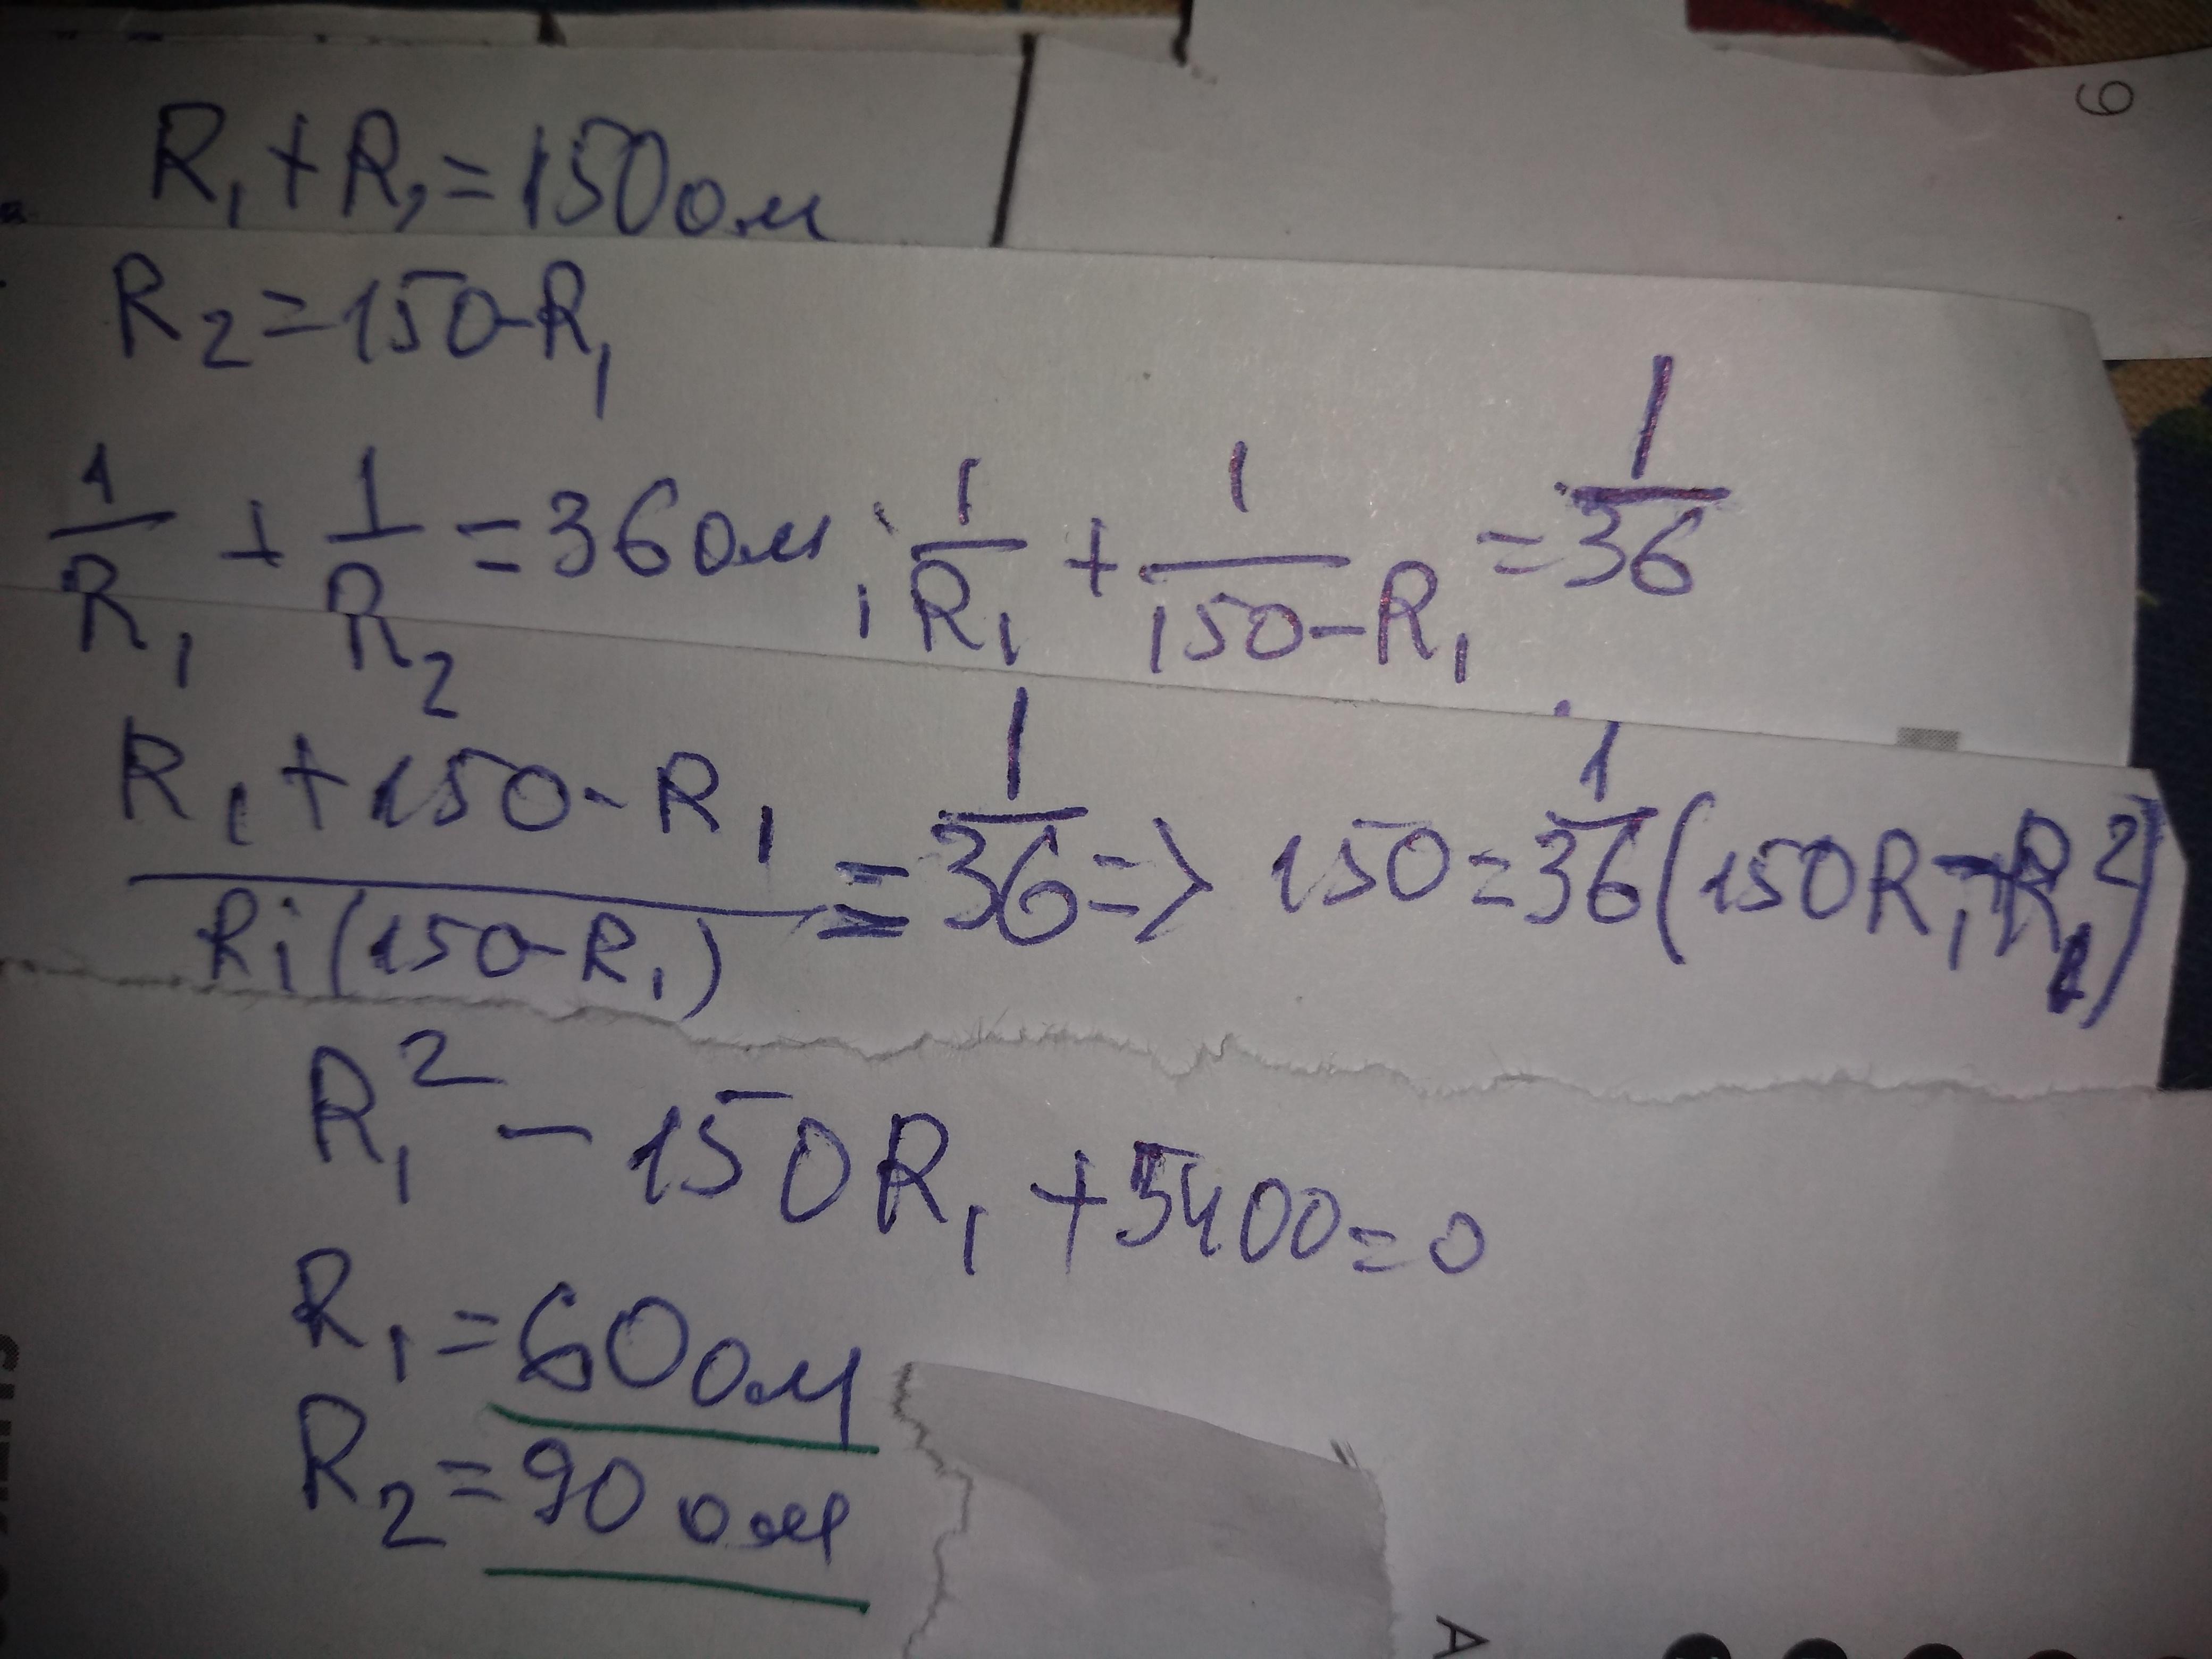 9
R₁+R₂=150ом
R₂=150-R₁
1/R₁ + 1/R₂ =36ом; 1/R₁ + 1/(150-R₁) = 1/36
(R₁+150-R₁)/(R₁(150-R₁)) = 1/36 => 150= 1/36 (150R₁-R₁²)
R₁²-150R₁+5400=0
R₁=60ом
R₂=90 ом
A